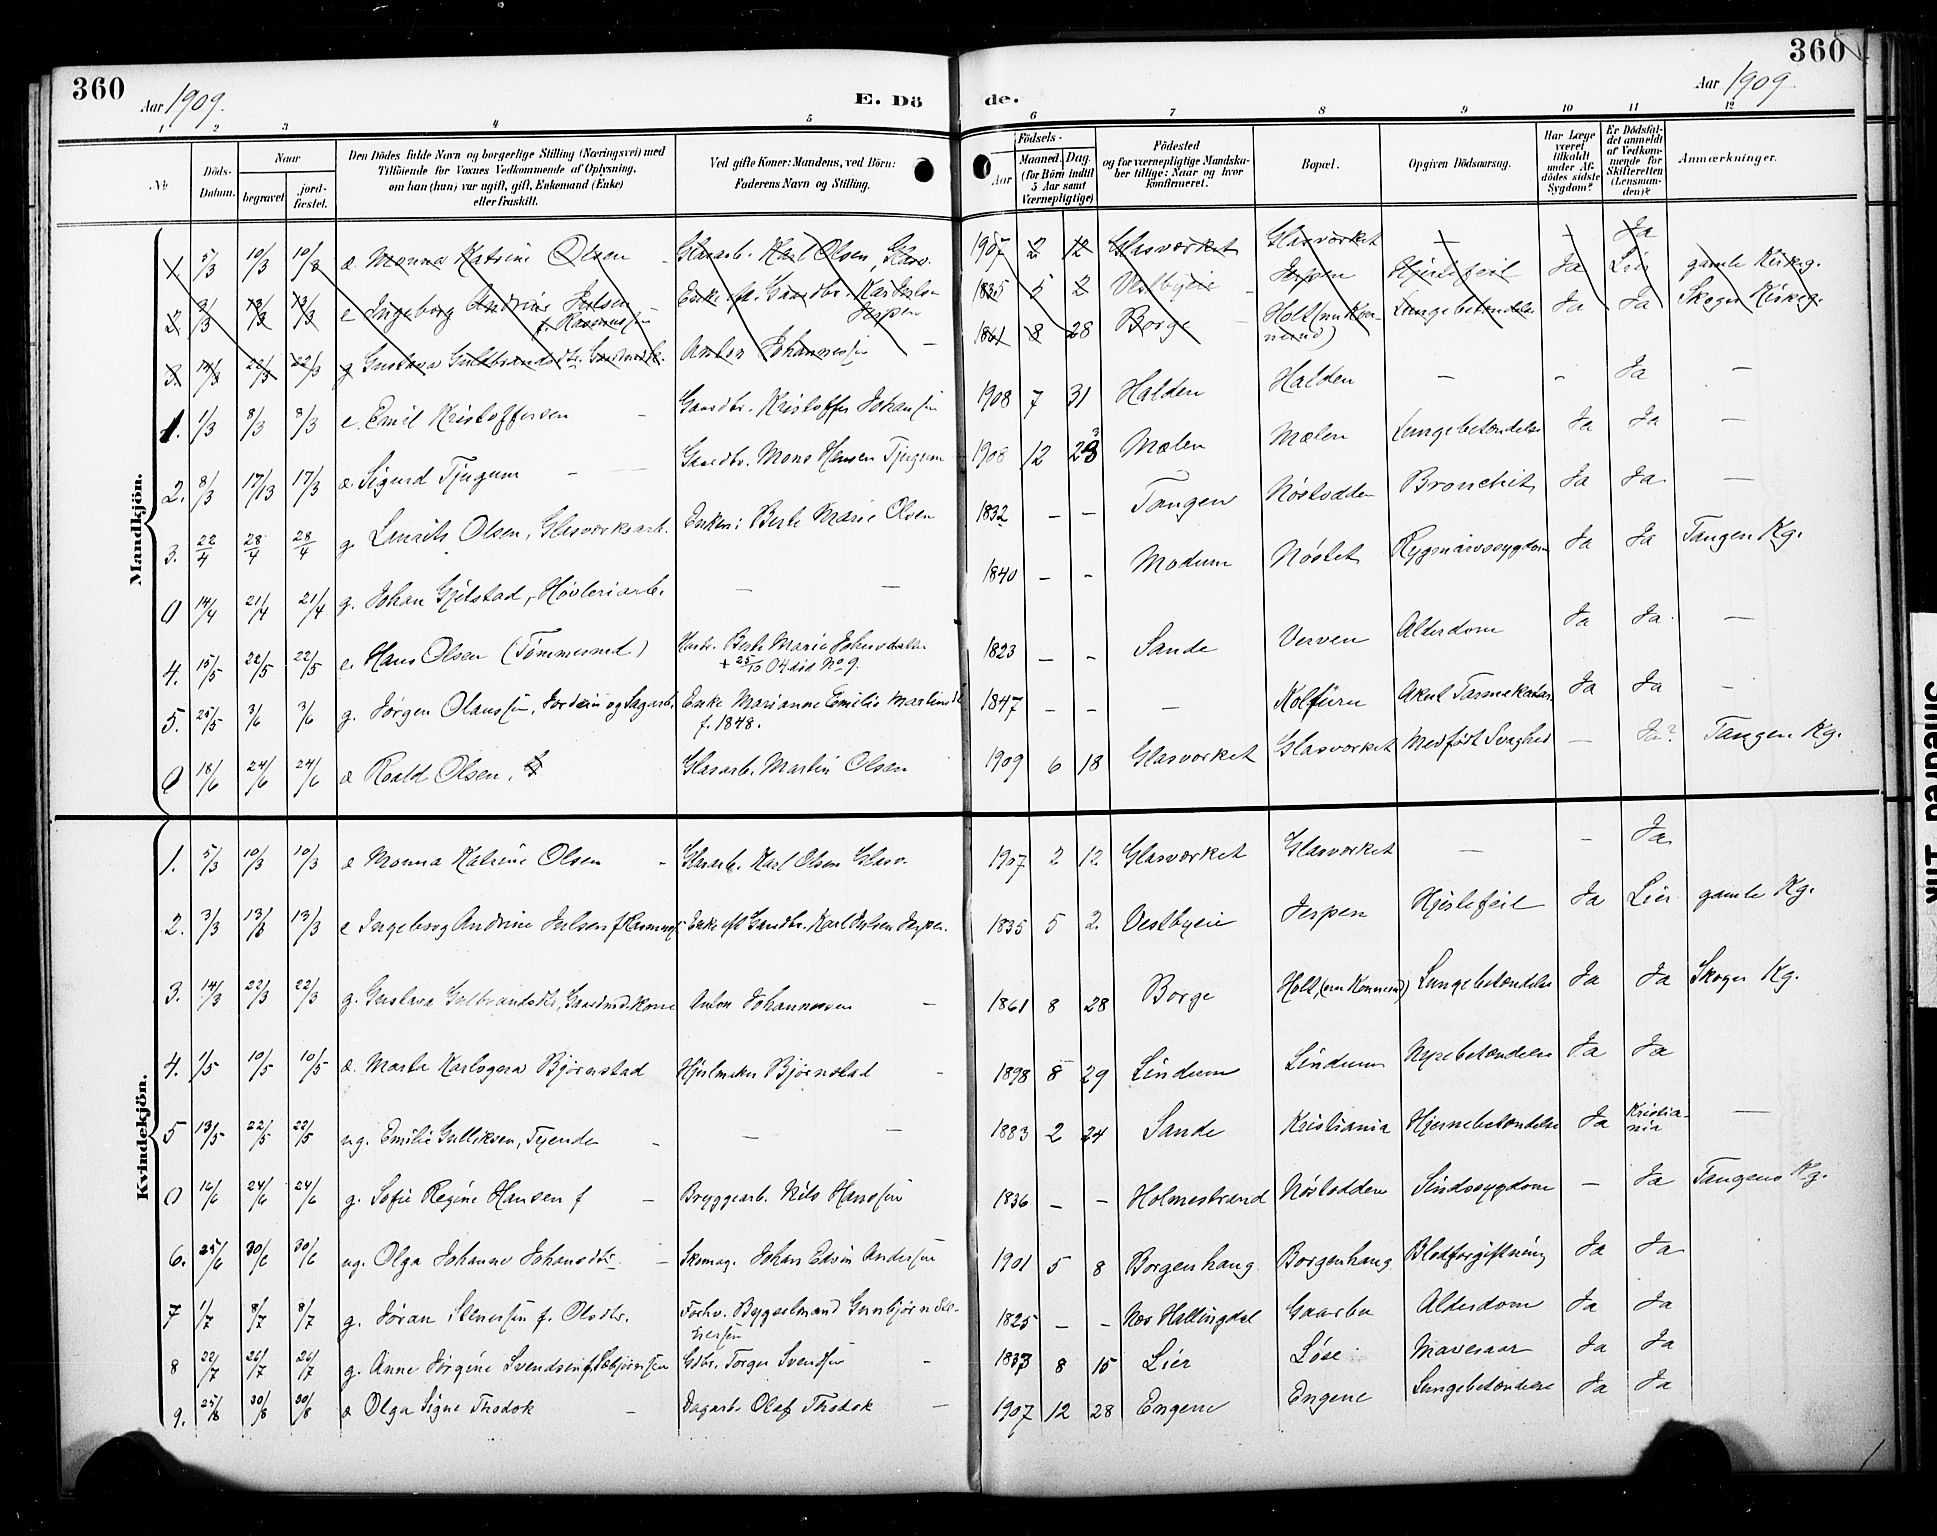 360
Aar 1909.
E. Dö de.
Aar 1909
360
1 2 3 4 5 6 7 8 9 10 11 12
No
Döds-Datum.
Naar
begravet
jord-fæstet.
Den Dödes fulde Navn og borgerlige Stilling (Næringsvei) med Tilföiende for Voxnes Vedkommende af Oplysning, om han (hun) var ugift, gift, Enkemand (Enke) eller fraskilt.
Ved gifte Koner: Mandens, ved Börn: Faderens Navn og Stilling.
Födsels-
Aar
Maaned. Dag.
(for Börn indtil 5 Aar samt Værnepligtige)
Födested og for værnepligtige Mandskaber tillige: Naar og hvor konfirmeret.
Bopæl.
Opgiven Dödsaarsag.
Har Læge været tilkaldt under Afdödes sidste Sygdom?
Er Dödsfaldet anmeldt af Vedkommende for Skifteretten (Lensmanden)?
Anmærkninger.
Mandkjön.
1 5/3 10/3 10/3 æ. Monna Katrine Olsen - Glasarb. Karl Olsen, Glasv. 1907 2 12 Glasværket Glasværket - - Ja
2 3/3 13/3 13/3 e Ingeborg Andrine Jelsen f. Rasmussen Enke eft. Gaardbr. Karl Jelsen Jespen 1835 5 2 Vestbyeie Jespen Hjertefeil Ja Lier gamle Kirkeg.
3 14/3 22/3 22/3 g Gustava Guldbrandsdtr. Anton Johannessen - 1861 8 28 Borge Holt Lungebetændelse Ja Ja Skoger Kirkeg.
1. 1/3 8/3 8/3 e. Emil Kristoffersen - Gaardbr. Kristoffer Johansen 1908 7 31 Halden Halden - - Ja -
2. 8/3 17/3 17/3 æ. Sigurd Tjugum - Gaardbr. Mons Hansen Tjugum 1908 12 23 Mælen Mælen Lungebetændelse Ja Ja -
3. 22/4 28/4 28/4 g. Laurits Olsen, Glasværksarb. Enken: Berte Marie Olsen 1832 - - Tangen Nøstodden Bronchit Ja Ja -
0 14/4 21/4 21/4 g. Johan Gjelstad, Høvleriarb. - - 1840 - - Modum Nøstet Rygmarvssygdom Ja Ja Tangen Kg.
4. 15/5 22/5 22/5 e. Hans Olsen (Tømmerud) Hustr. Berte Marie Johnsdatter
+ 25/10 04 død No 9. 1823 - - Sande Verven Alderdom Ja Ja. -
5. 25/5 3/6 3/6 g. Jørgen Olaussen, Jordein og Sagarb. Enke Marianne Emilie Martinsdtr
f. 1848. 1847 - - - Kolfurn Akut Tarmekatar Ja Ja -
0 18/6 24/6 24/6 æ Roald Olsen. Glasarb. Martin Olsen 1909 6 18 Glasværket Glasværket Medfødt Svaghed - Ja? Tangen Kg.
Kvindekjön.
1. 5/3 10/3 10/3 æ Monna Katrine Olsen - Glasarb. Karl Olsen Glasv. 1907 2 12 Glasværket Glasværket - - Ja
2. 3/3 13/3 13/3 e Ingeborg Andrine Jelsen f. Rasmuss. Enke eft Gaardbr. Karl Jelsen Jespen. 1835 5 2. Vestbyeie Jespen Hjertefeil Ja Lier gamle Kg.
3. 14/3 22/3 22/3 g. Gustava Gulbrandsdtr, Gaardmd.kone Anton Johannessen - 1861 8 28 Borge Holt, Lungebetændelse Ja Ja Skoger Kg.
4. 1/5 10/5 10/5 æ. Marta Karlogera Bjørnstad Hjulmaker Bjørnstad - 1898 8 29 Lindum Lindum Nyrebetændelse Ja Ja
5 13/5 22/5 22/5 ug. Emilie Gulliksen, Tjende - - - 1883 2 24 Sande Kristiania Hjernebetændelse Ja Kristiania -
0 16/6 24/6 24/6 g. Sofie Regine Hansen f - Bryggearb. Nils Hanssen 1836 - - Holmestrand Nøstodden Sindssygdom - Ja Tangens Kg.
6. 25/6 30/6 30/6 ug. Olga Johanne Johansdtr. - Skomag. Johan Edvin Andersen 1901 5 8 Borgenhaug Borgenhaug Blodforgiftning Ja Ja
7 1/7 8/7 8/7 g. Jøran Stenersen f. Olsdtr. Forhv. Bygselmand Gunbjørn Ste-
nersen 1825 - - Næs Hallingdal Gaarba Alderdom Ja Ja
8 22/7 26/7 26/7 g. Anne Jørgine Svendsen f. Gdbr. Torger Svendsen - 1833 8 15 Lier Løse Mavesaar Ja Ja
9. 25/8 30/8 30/8 æ Olga Signe Thodok - Dagarb. Olaf Thodok - 1907 12 28 Engene Engene Lungebetændelse Ja Ja